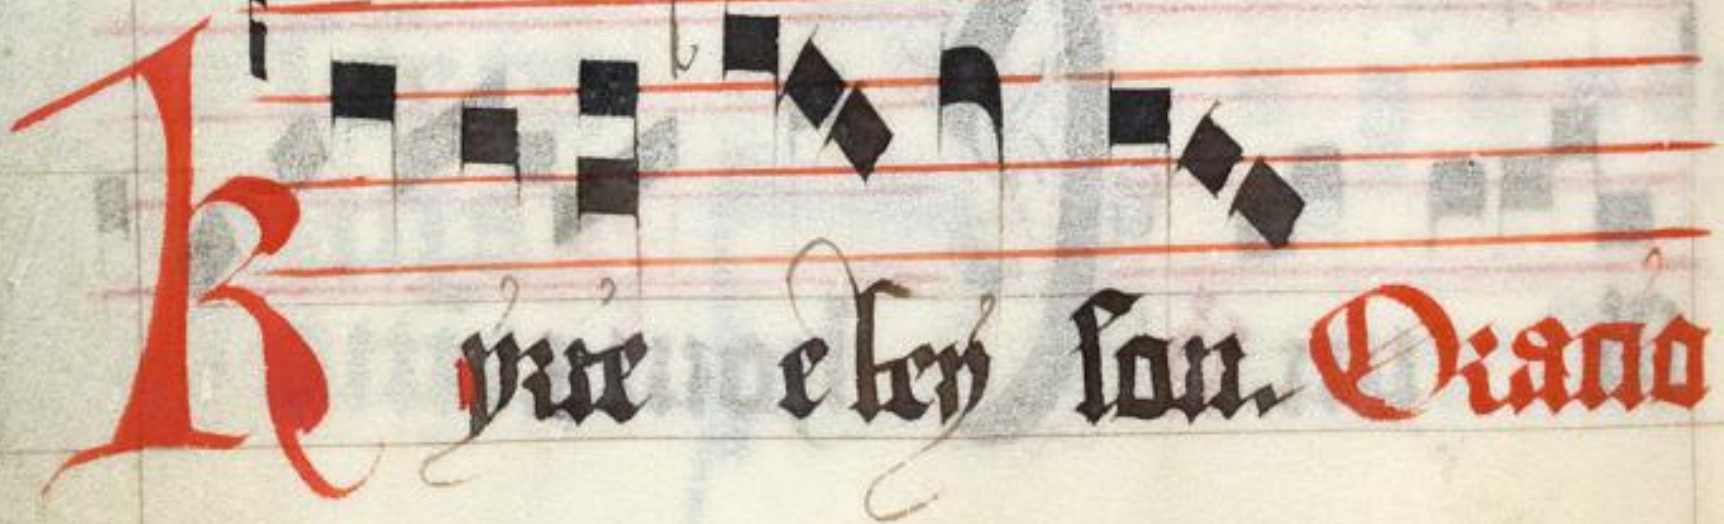 Kyrie eleyson. Oratio